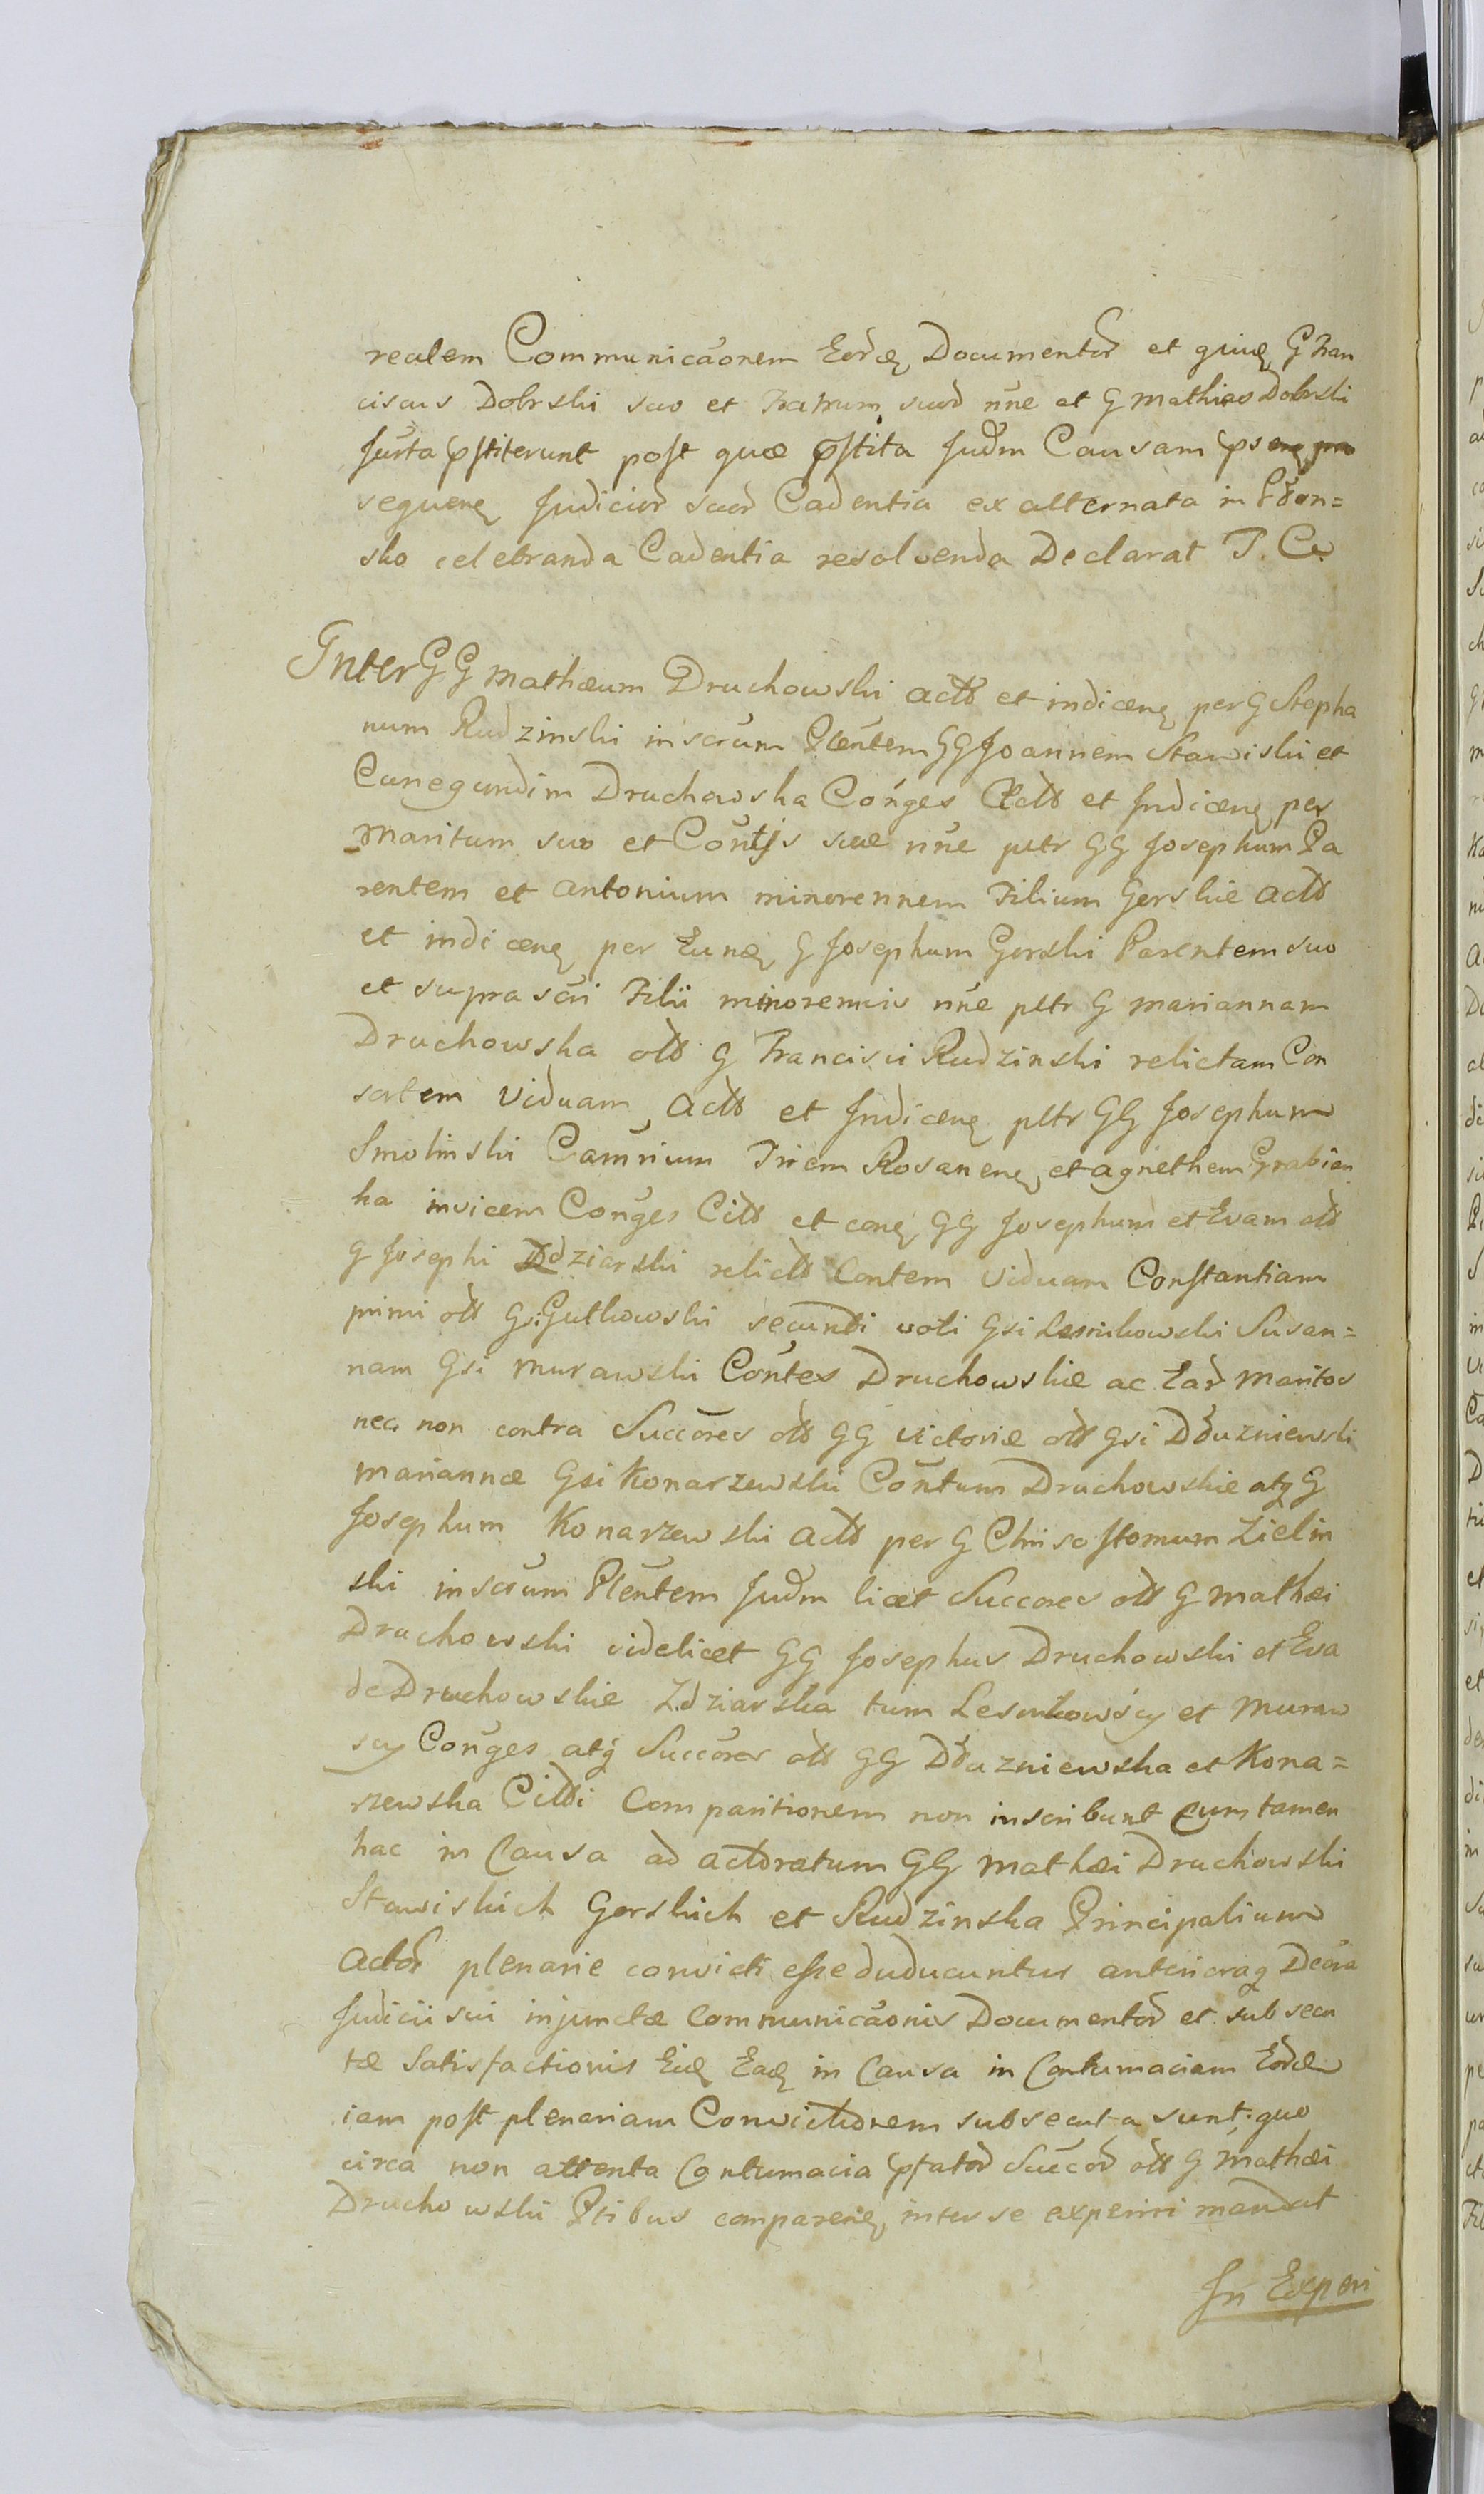 realem Communicãonem Eordq Documentor et qiuq G Fran
ciscus Dobrski suo et Fratrum suor nne et G Mathias Dobrski
Jurta pstiterunt post quæ pstita Judm Causam
sequenq Judicior suor Cadentia ex alternata in Płon=
sko celebranda Cadentia resolvenda Declarat T. C.
Inter GG Mathæum Druchowski act et indicenq per G Stepha
num Rudzinski inscrum Plentem GG Joannem Stawiski et
Cunegundim Druchowska Conges Act et Indicenq per
Maritum suo et Contjs suæ nne pltr GG Josephum Pa
rentem et Antonium minorennem Filium Gorskie act
et indicenq per Eunq G Josephum Gorski Parentem suo
et suprascri Filii minorennis nne pltr G Mariannam
Druchowska olt G Francisci Rudzinski relictam Con
sortem Viduam Act et Indicenq pltr GG Josephum
Smolinski Camrium Trrem Rosanenq et Agnethem Grabien
ka invicem Conges Citt et conq GG Josephum et Evam olt
G Josephi Zdziarski relict Contem Viduam Constantiam
primi olt Gsi Gutkowski secundi voti Gsi Lesnikowski Susan=
nam Gsi Murawski Contes Druchowskie ac Ear Maritos
nec non contra Succores olt GG Victoriæ olt Gsi Dłuzniewski
Mariannæ Gsi Konarzewski Contum Druchowskie atq G
Josephum Konarzewski Act per G Chrisostomum Zielin
ski inscrum Plentem Judm licet Succores olt G Mathæi
Druchowski videlicet GG Josephus Druchowski et Eva
de Druchowskie Zdziarska tum Lesnikowscy et Muraw
scy Conges atq Succores olt GG Dłuzniewska et Kona=
rzewska Citti Comparitionem non inscribunt Cum tamen
hac in Causa ad actoratum GG Mathæi Druchowski
Stawiskich Gorskich et Rudzinska Principalium
Actor plenarie convicti esse duducuntur anterioraq Decra
Judicii sui injunctæ Communicãonis Documentor et subsecu
tæ Satisfactionis Eiq Eadq in Causa in Contumaciam Eord
iam post plenariam Convictionem subsecuta sunt; quo
circa non attenta Contumacia pfator Succor olt G Mathæi
Druchowski Ptibus comparenq inter se experiri mandat
In Experi